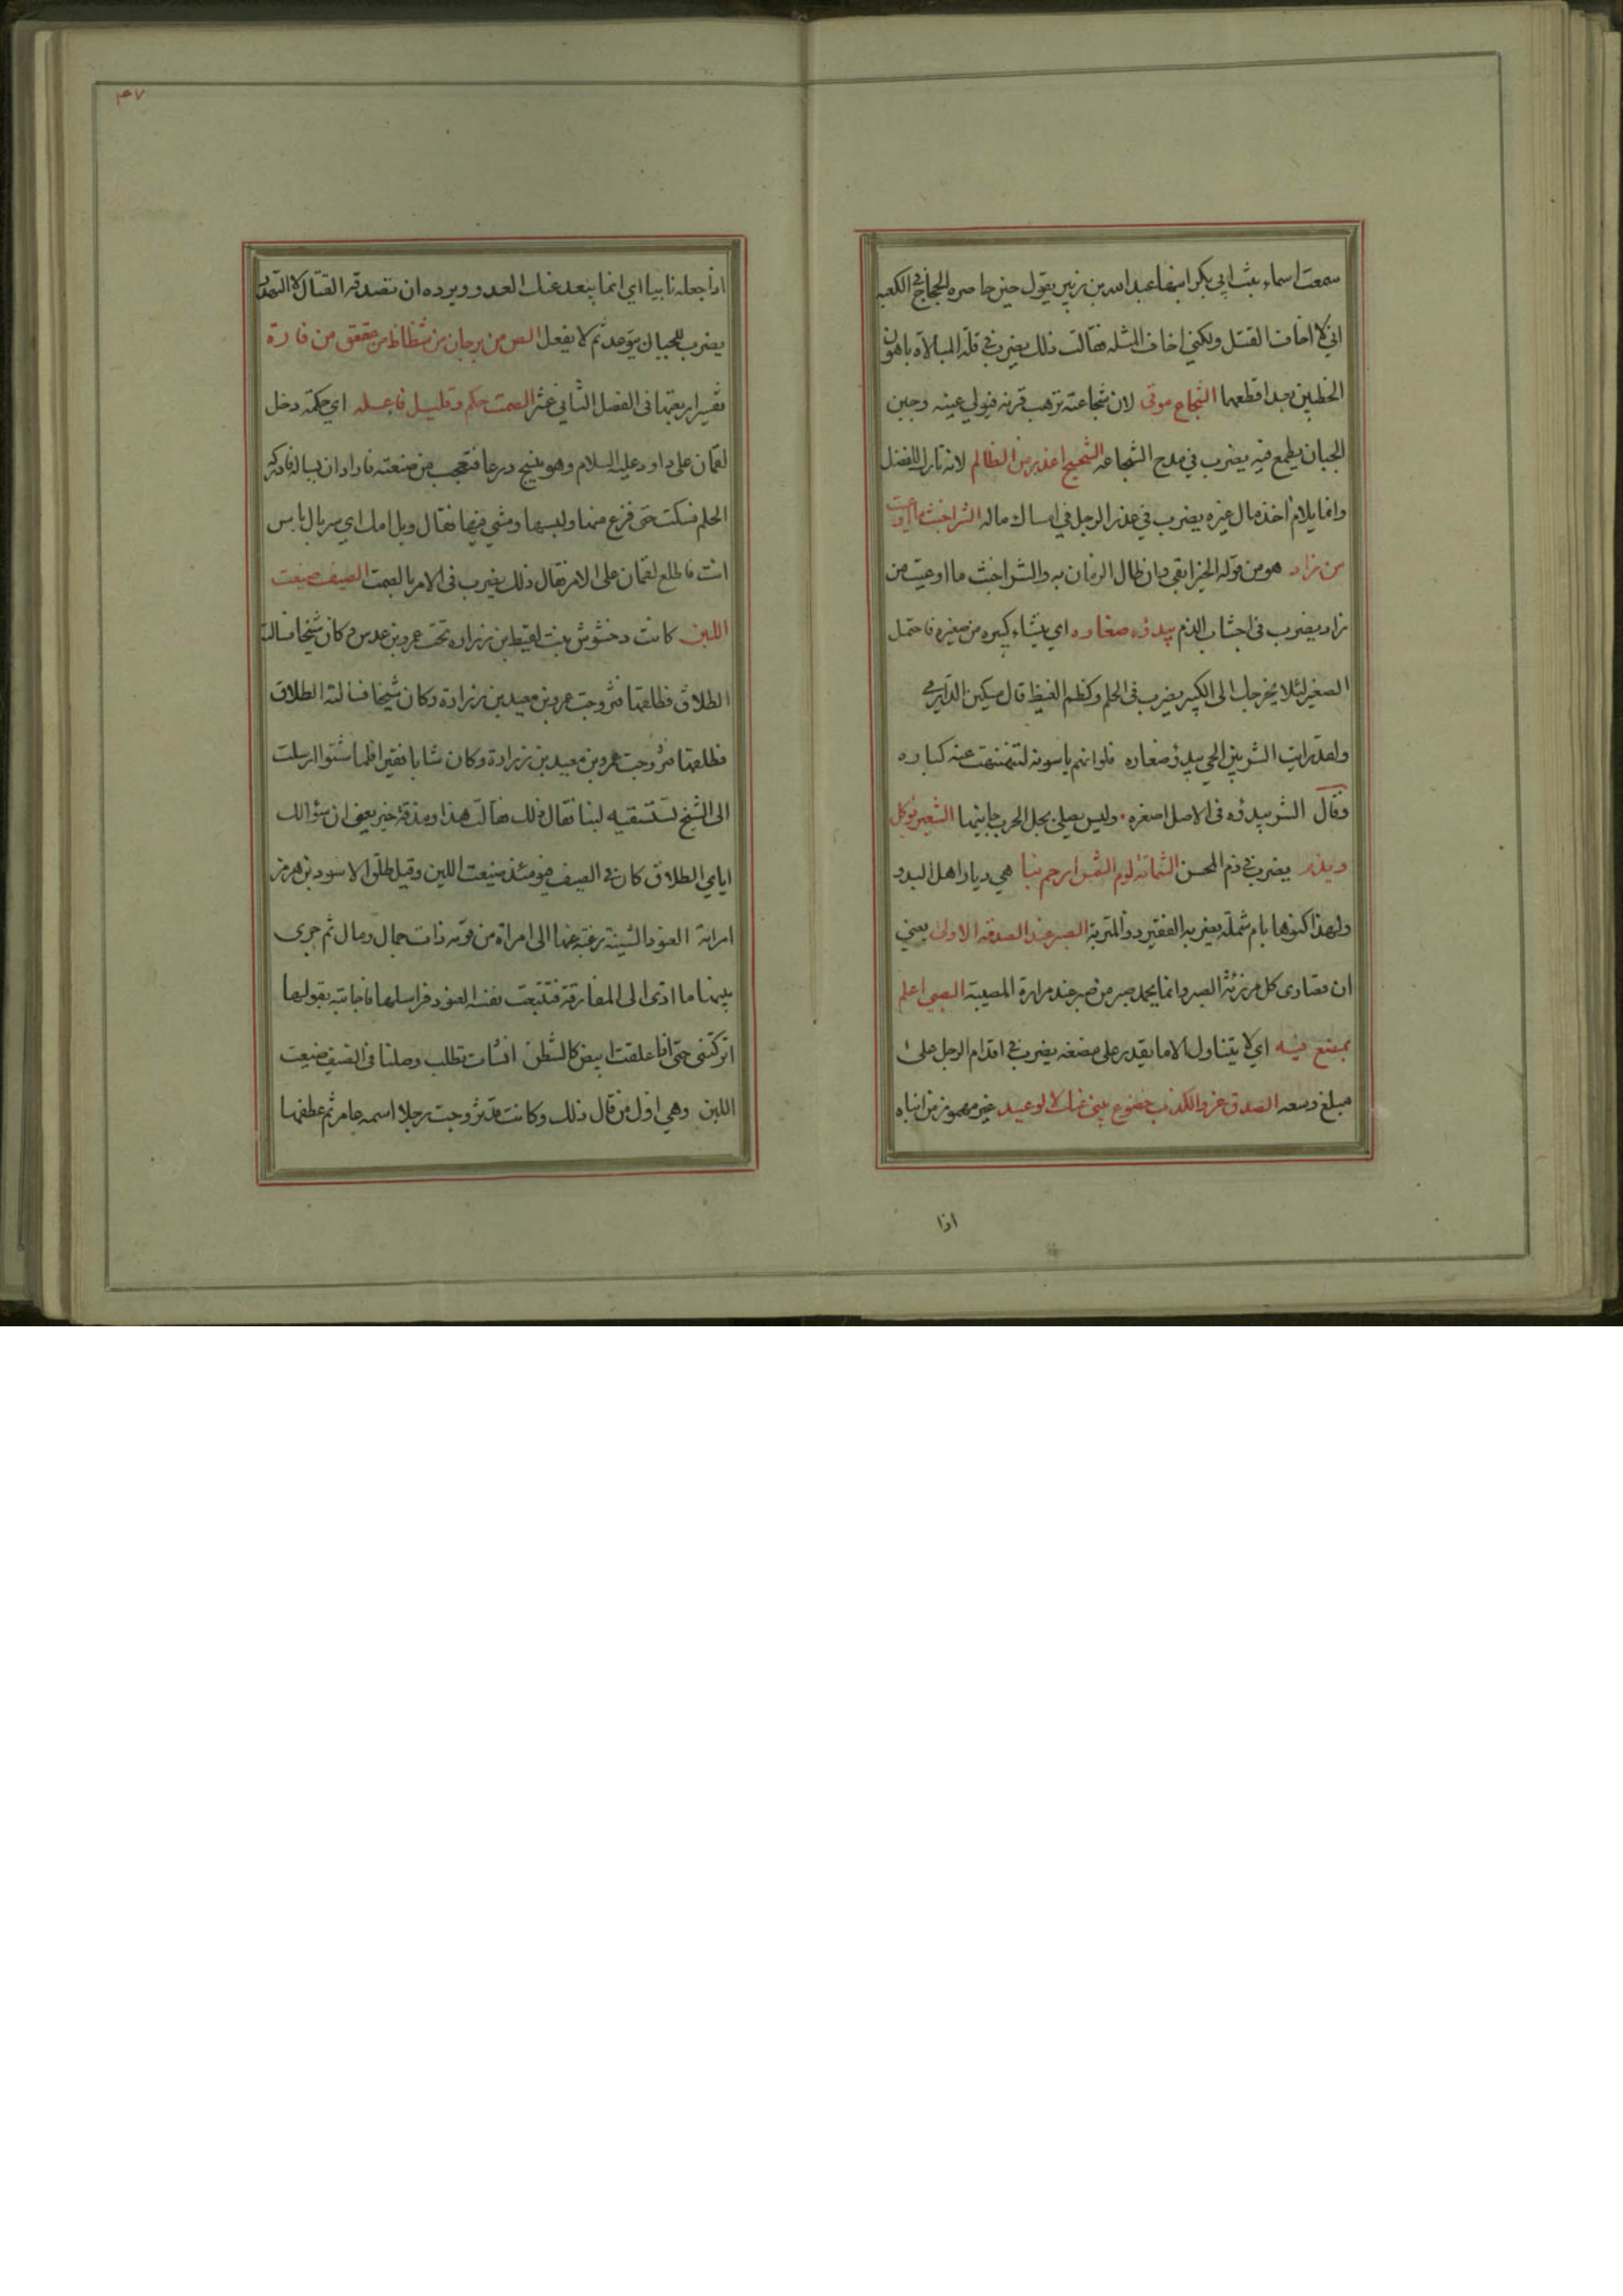 سمعت اسماء بنت ابي بكر ابنها عبد الله بن زبير يقول حين حاصره الحجاج في الكعبه
اني لا اخاف القتل ولكني اخاف المثله فقالت ذلك يضرب في قلة المبالاة باهون
الخطبين بعد اقطعهما الشجاع موقى لان شجاعته ترهب قرنه فيولي عينه وجبن
الجبان يطمع فيه يضرب في مدح الشجاعه الشحيح اعذر من الظالم لانه تارك للفضل
وانما يلام اخذ مال غيره يضرب في عذر الرجل في امساك ماله الشر اخبث ما اوعيت
من زاد هو من قوله الخير ابقى وان طال الزمان به والشر اخبث ما اوعيت من
زاد يضرب في اجتناب الذم يبدؤه صغاره اي ينشاء كبيره من صغيره فاحتمل
الصغير لئلا يخرجك الى الكبير يضرب في الحلم وكظم الغيظ قال مسكين الدارمي
ولقد رايت الشر بين الحي يبدؤ صغاره فلو انهم ياسونه لتنهنهت عنه كباره
وقال الشر يبدؤه في الاصل اصغره وليس يصلي بجل الحرب جانيها الشعير يؤكل
ويذم يضرب في ذم المحسن الشماتة لوم الشمس ارحم بنا هي ديار اهل البدو
ولهذا كنوها بام شملة يعني به الفقير ذو المتربة الصبر عند الصدمه الاولى يعني
ان قصارى كل مرزئة الصبر وانما يحمد صبر من صبر عند مرارة المصيبة الصبي اعلم
بمضغ فيه اي لا يتناول الا ما يقدر على مضغه يضرب في اقدام الرجل على
مبلغ وسعه الصدق عز والكذب خضوع ينبي عنك لا لوعيد غير مهموز من انباه
اذا
٤٧
اذا جعله نابيا اي انما يبعد عنك العدو ويرده ان تصدقه القتال لا التهدد
يضرب للجبان يتوعد ثم لا يفعل الص من برجان من شظاظ من عقعق من فارة
تفسير اربعتها في الفصل الثاني عشر الصمت حكم وقليل فاعله اي حكمة دخل
لقمان على داود عليه السلام وهو ينسج درعا فتعجب من صنعته فاراد ان يساله فادركه
الحلم فسكت حتى فرغ منها ولبسها ومشى فيها فقال ويل امك اي سربال باس
انت فاطلع لقمان على الامر فقال ذلك يضرب في الامر بالصمت الصيف ضيعت
اللبن كانت دختنوش بنت لقيط بن زراره تحت عمرو بن عدس وكان شيخا فسالته
الطلاق فطلقها فتزوجت عمرو بن معبد بن زرارة وكان شيخا فسالته الطلاق
فطلقها فتزوجت عمرو بن معبد بن زرارة وكان شابا فقيرا فلما شتوا ارسلت
الى الشيخ تستسقيه لبنا فقال ذلك فقالت هذا ومذقة خير يعني ان سؤالك
اياي الطلاق كان في الصيف فيومئذ ضيعت اللبن وقيل طلق الاسود بن هرمز
امراته العنود الشنية رغبة عنها الى امراة من قومه ذات جمال ومال ثم جرى
بينهما ما ادى الى المفارقة فتتبعت نفسه العنود فراسلها فاجابته بقولها
اتركتني حتى اذا علقت ابيض كالشطن انشات تطلب وصلنا في الصيف ضيعت
اللبن وهي اول من قال ذلك وكانت قد تزوجت رجلا اسمه عامر ثم عطفها